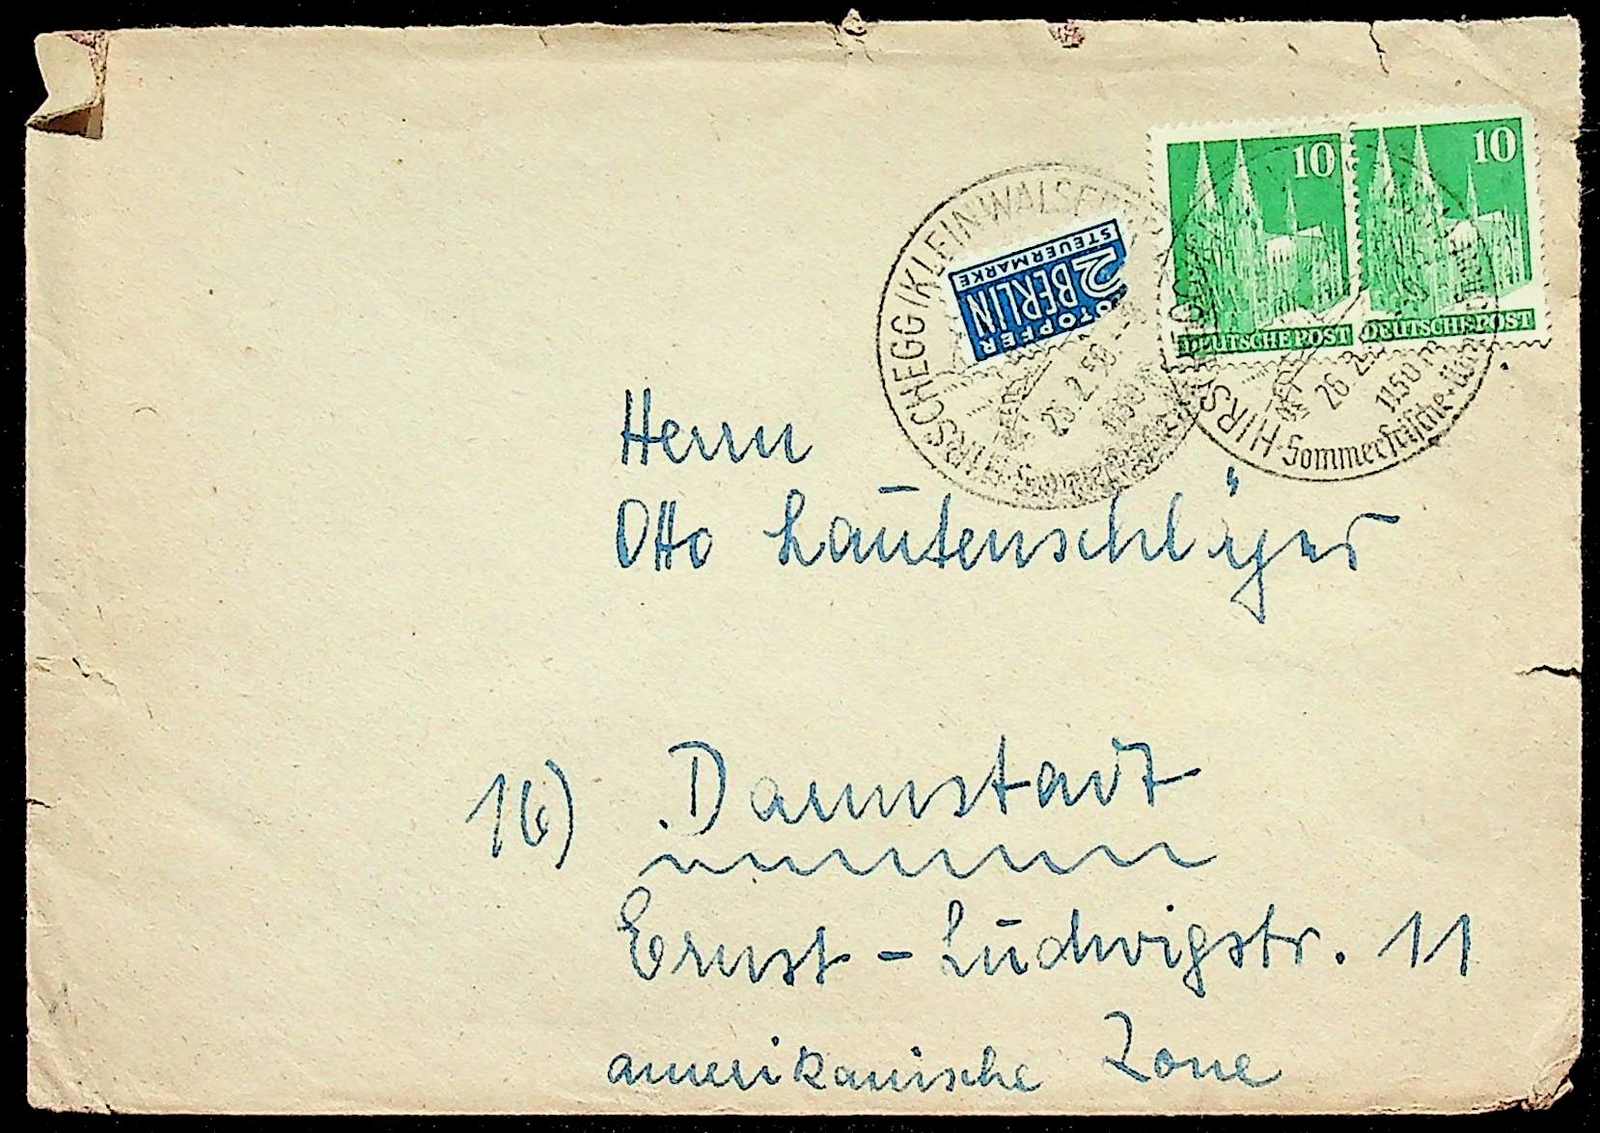 10 10
DEUTSCHE POST DEUTSCHE POST
NOTOPFER
2 BERLIN
STEUERMARKE
HIRSCHEGG (KLEINWALSERTAL)
26.2.50
1150 m
HIRSCHEGG
26.2.
1150 m
Sommerfrische
Herrn
Otto Lautenschläger
16) Darmstadt
Ernst-Ludwigstr. 11
amerikanische Zone